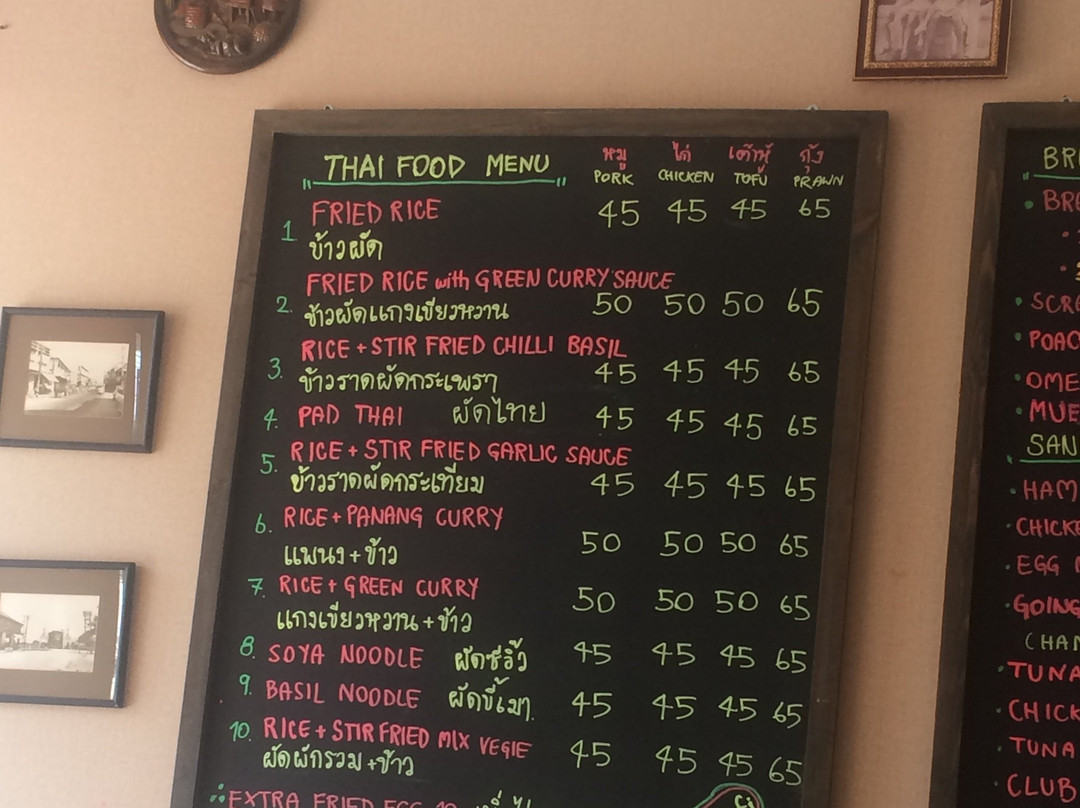 THAI FOOD MENU หมู ไก่ เต้าหู้ กุ้ง
PORK CHICKEN TOFU PRAWN
1 FRIED RICE 45 45 45 65
ข้าวผัด
FRIED RICE with GREEN CURRY SAUCE
2. ข้าวผัดแกงเขียวหวาน 50 50 50 65
RICE + STIR FRIED CHILLI BASIL
3. ข้าวราดผัดกระเพรา 45 45 45 65
4. PAD THAI ผัดไทย 45 45 45 65
5. RICE + STIR FRIED GARLIC SAUCE
ข้าวราดผัดกระเทียม 45 45 45 65
6. RICE + PANANG CURRY
แพนง + ข้าว 50 50 50 65
7. RICE + GREEN CURRY
แกงเขียวหวาน + ข้าว 50 50 50 65
8. SOYA NOODLE ผัดซีอิ้ว 45 45 45 65
9. BASIL NOODLE ผัดขี้เมา 45 45 45 65
10. RICE + STIR FRIED MIX VEGIE
ผัดผักรวม + ข้าว 45 45 45 65
EXTRA FRIED EGG 10
SAN
HAM
EGG
GOING
TUNA
TUNA
CLUB